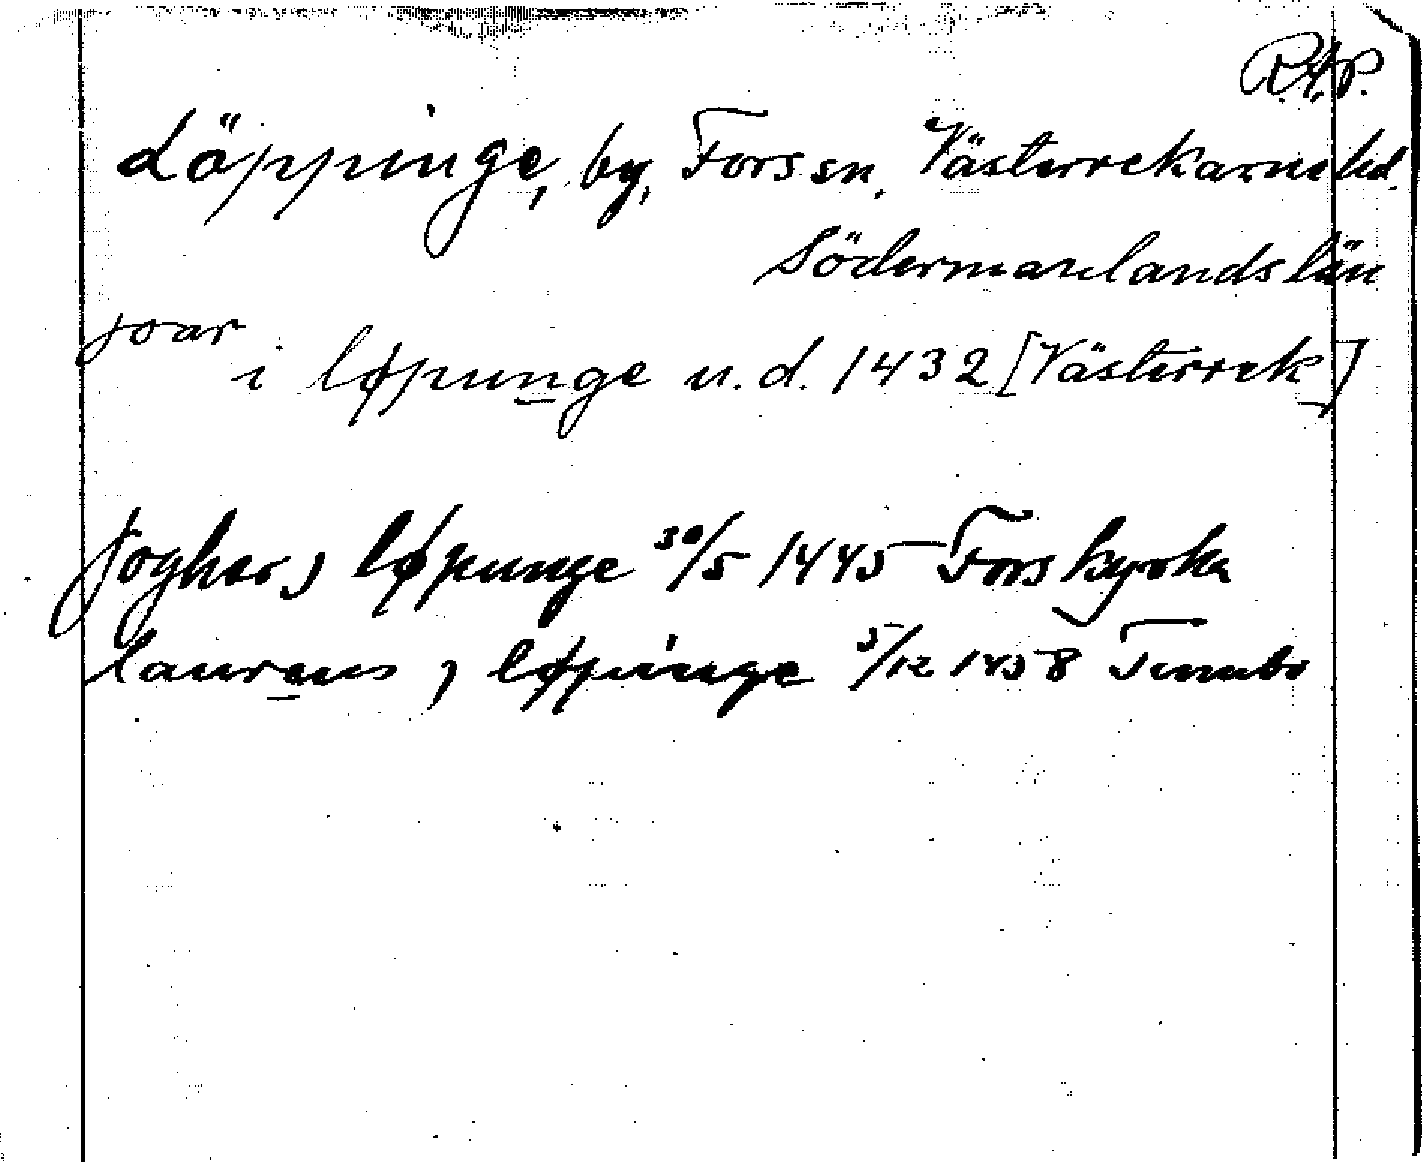 R.A.P.
Löppinge, by, Fors sn. Västerrekarne hd.
Södermanlands län
joar
i løpunge u.d. 1432 [Västerrek]
joghar j løpunge 30/5 1445 Fors kyrka
laurens j løpinge 5/12 1458 Tumbo